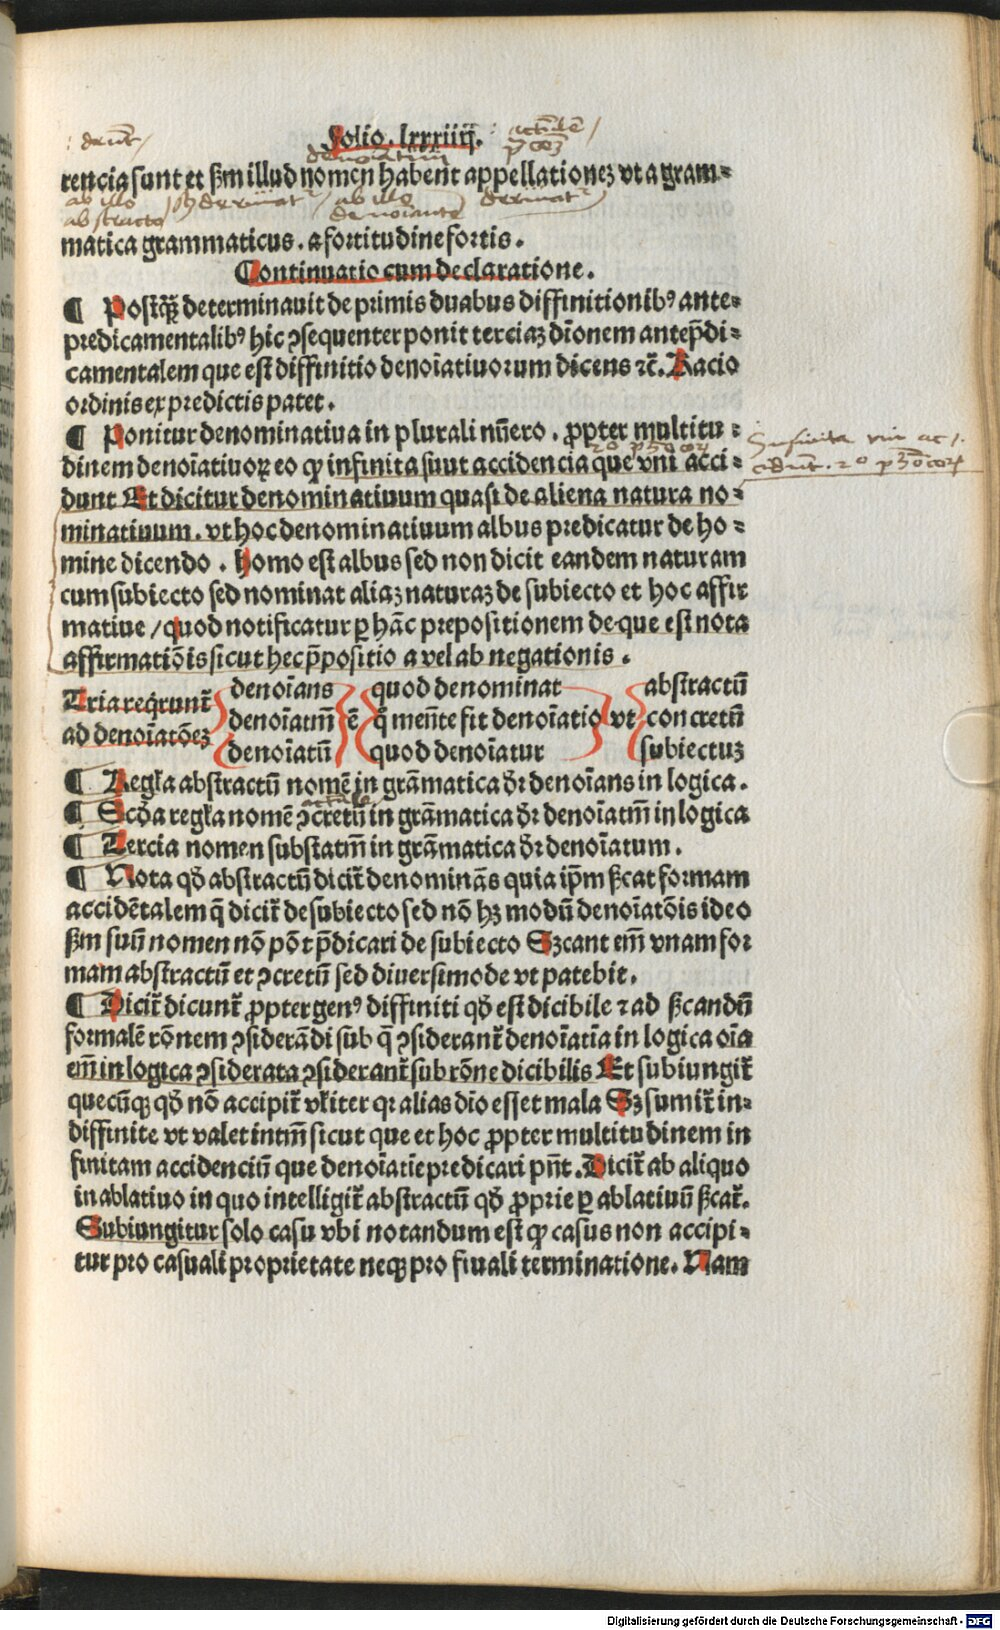 Folio. lxxxiiij.
rencia sunt et ẜm illud nomen habent appellationeꝫ vt a gram⸗
matica grammaticus. a fortitudine fortis.
Continuatio cum declaratione.
¶ Postq̄ꝫ determinauit de primis duabus diffinitionibꝰ ante⸗
predicamentalibꝰ hic ꝯsequenter ponit terciaꝫ dīonem antep̄di⸗
camentalem que est diffinitio denoīatiuorum dicens ⁊c̄. Racio
ordinis ex predictis patet.
¶ Ponitur denominatiua in plurali nūero. ꝓpter multitu⸗
dinem denoīatiuoꝝ eo ꝙ infinita sunt accidencia que vni acci⸗
dunt Et dicitur denominatiuum quasi de aliena natura no⸗
minatiuum. vt hoc denominatiuum albus predicatur de ho⸗
mine dicendo. homo est albus sed non dicit eandem naturam
cum subiecto sed nominat aliaꝫ naturaꝫ de subiecto et hoc affir
matiue / quod notificatur ꝑ hāc prepositionem de que est nota
affirmatiōis sicut hec p̄positio a vel ab negationis.
Tria reqrunt̄ ad denoīatōeꝫ
denoīans denoīatm̄ denoīatū
ē
quod denominat
q̄ mēte fit denoīatio
quod denoīatur
vt
abstractū
concretū
subiectuꝫ
¶ Regła abstractū nomē in grāmatica dr̄ denoīans in logica.
¶ Scd̄a regła nomē ꝯcretū in grāmatica dr̄ denoīatm̄ in logica
¶ Tercia nomen substatm̄ in grāmatica dr̄ denoīatum.
¶ Nota qd̄ abstractū dicit̄ denominās quia ip̄m ẜcat formam
accidētalem q̄ dicit̄ de subiecto sed nō hꝫ modū denoīatōis ideo
ẜm suū nomen nō pōt p̄dicari de subiecto Sꝫcant em̄ vnam for
mam abstractū et ꝯcretū sed diuersimode vt patebit.
¶ Dicit̄ dicunt̄ ꝓpter genꝰ diffiniti qd̄ est dicibile ⁊ ad ẜcandū
formalē rōnem ꝯsiderādi sub q̄ ꝯsiderant̄ denoīatīa in logica oīa
em̄ in logica ꝯsiderata ꝯsiderant̄ sub rōne dicibilis Et subiungit̄
quecūqꝫ qd̄ nō accipit̄ vłiter qꝛ alias dīo esset mala Sꝫ sumit̄ in⸗
diffinite vt valet intm̄ sicut que et hoc ꝓpter multitudinem in
finitam accidenciū que denoīatīe predicari pn̄t. Dicit̄ ab aliquo
in ablatiuo in quo intelligit̄ abstractū qd̄ ꝓprie ꝑ ablatiuū ẜcat̄.
Subiungitur solo casu vbi notandum est ꝙ casus non accipi⸗
tur pro casuali proprietate neqꝫ pro finali terminatione. Nam
Digitalisierung gefördert durch die Deutsche Forschungsgemeinschaft - DFG